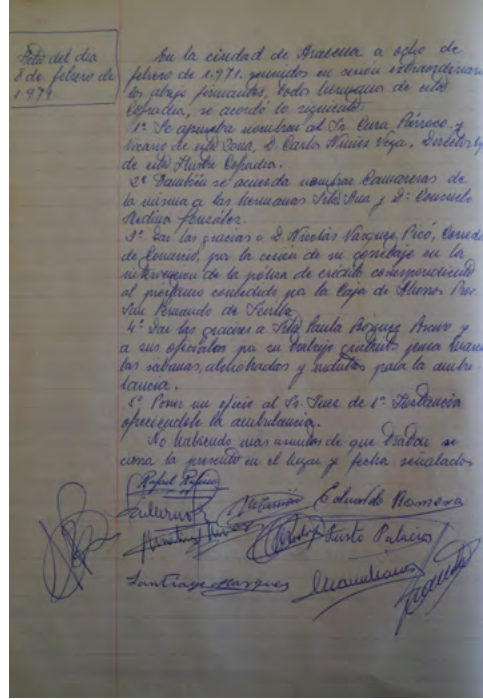 Acta del dia
8 de febrero de
1.971
En la ciudad de Aracena a ocho de
febrero de 1.971. reunidos en sesión extraordinaria
los abajo firmantes, todos hermanos de esta
Cofradia, se acordó lo siguiente:
1º Se aprueba nombrar al Sr. Cura Párroco y
Vicario de esta Zona, D. Carlos Núñez Vega, Director
de esta Ilustre Cofradia.
2º También se acuerda nombrar Camareras de
la misma a las hermanas Srta Ana y Dª Consuelo
Medina González.
3º Dar las gracias a D. Nicolás Vazquez Picó, Corredor
de Comercio, por la cesión de su corretaje en la
intervención de la póliza de crédito correspondiente
al préstamo concedido por la Caja de Ahorros Prov.
San Fernando de Sevilla.
4º Dar las gracias a Srta Paula y
a sus oficialas por su trabajo gratuito para
las sabanas, almohadas y para la ambu-
lancia.
5º Poner un oficio al Sr. Juez de 1ª Instancia
ofreciendole la ambulancia.
No habiendo más asuntos de que tratar se
cierra la presente en el lugar y fecha señalados
Rafael
Eduardo Romero
Justo Palacios
Santiago Marquez